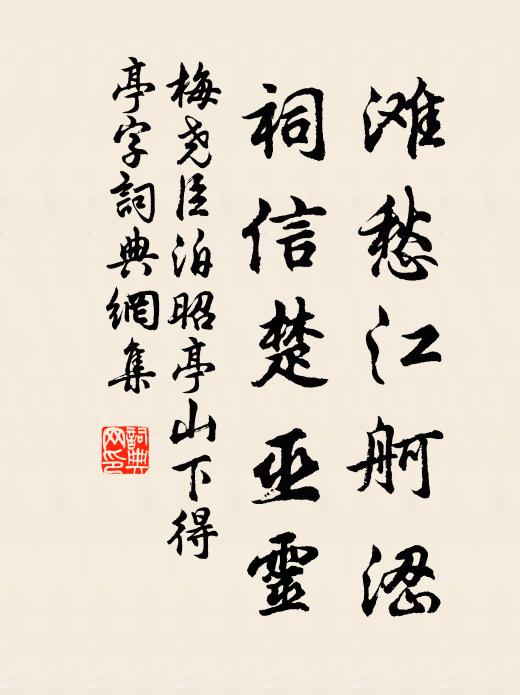 滩愁江舸涩
祠信楚巫靈
梅尧臣泊昭亭山下得
亭字詞典網集
詞典
网印